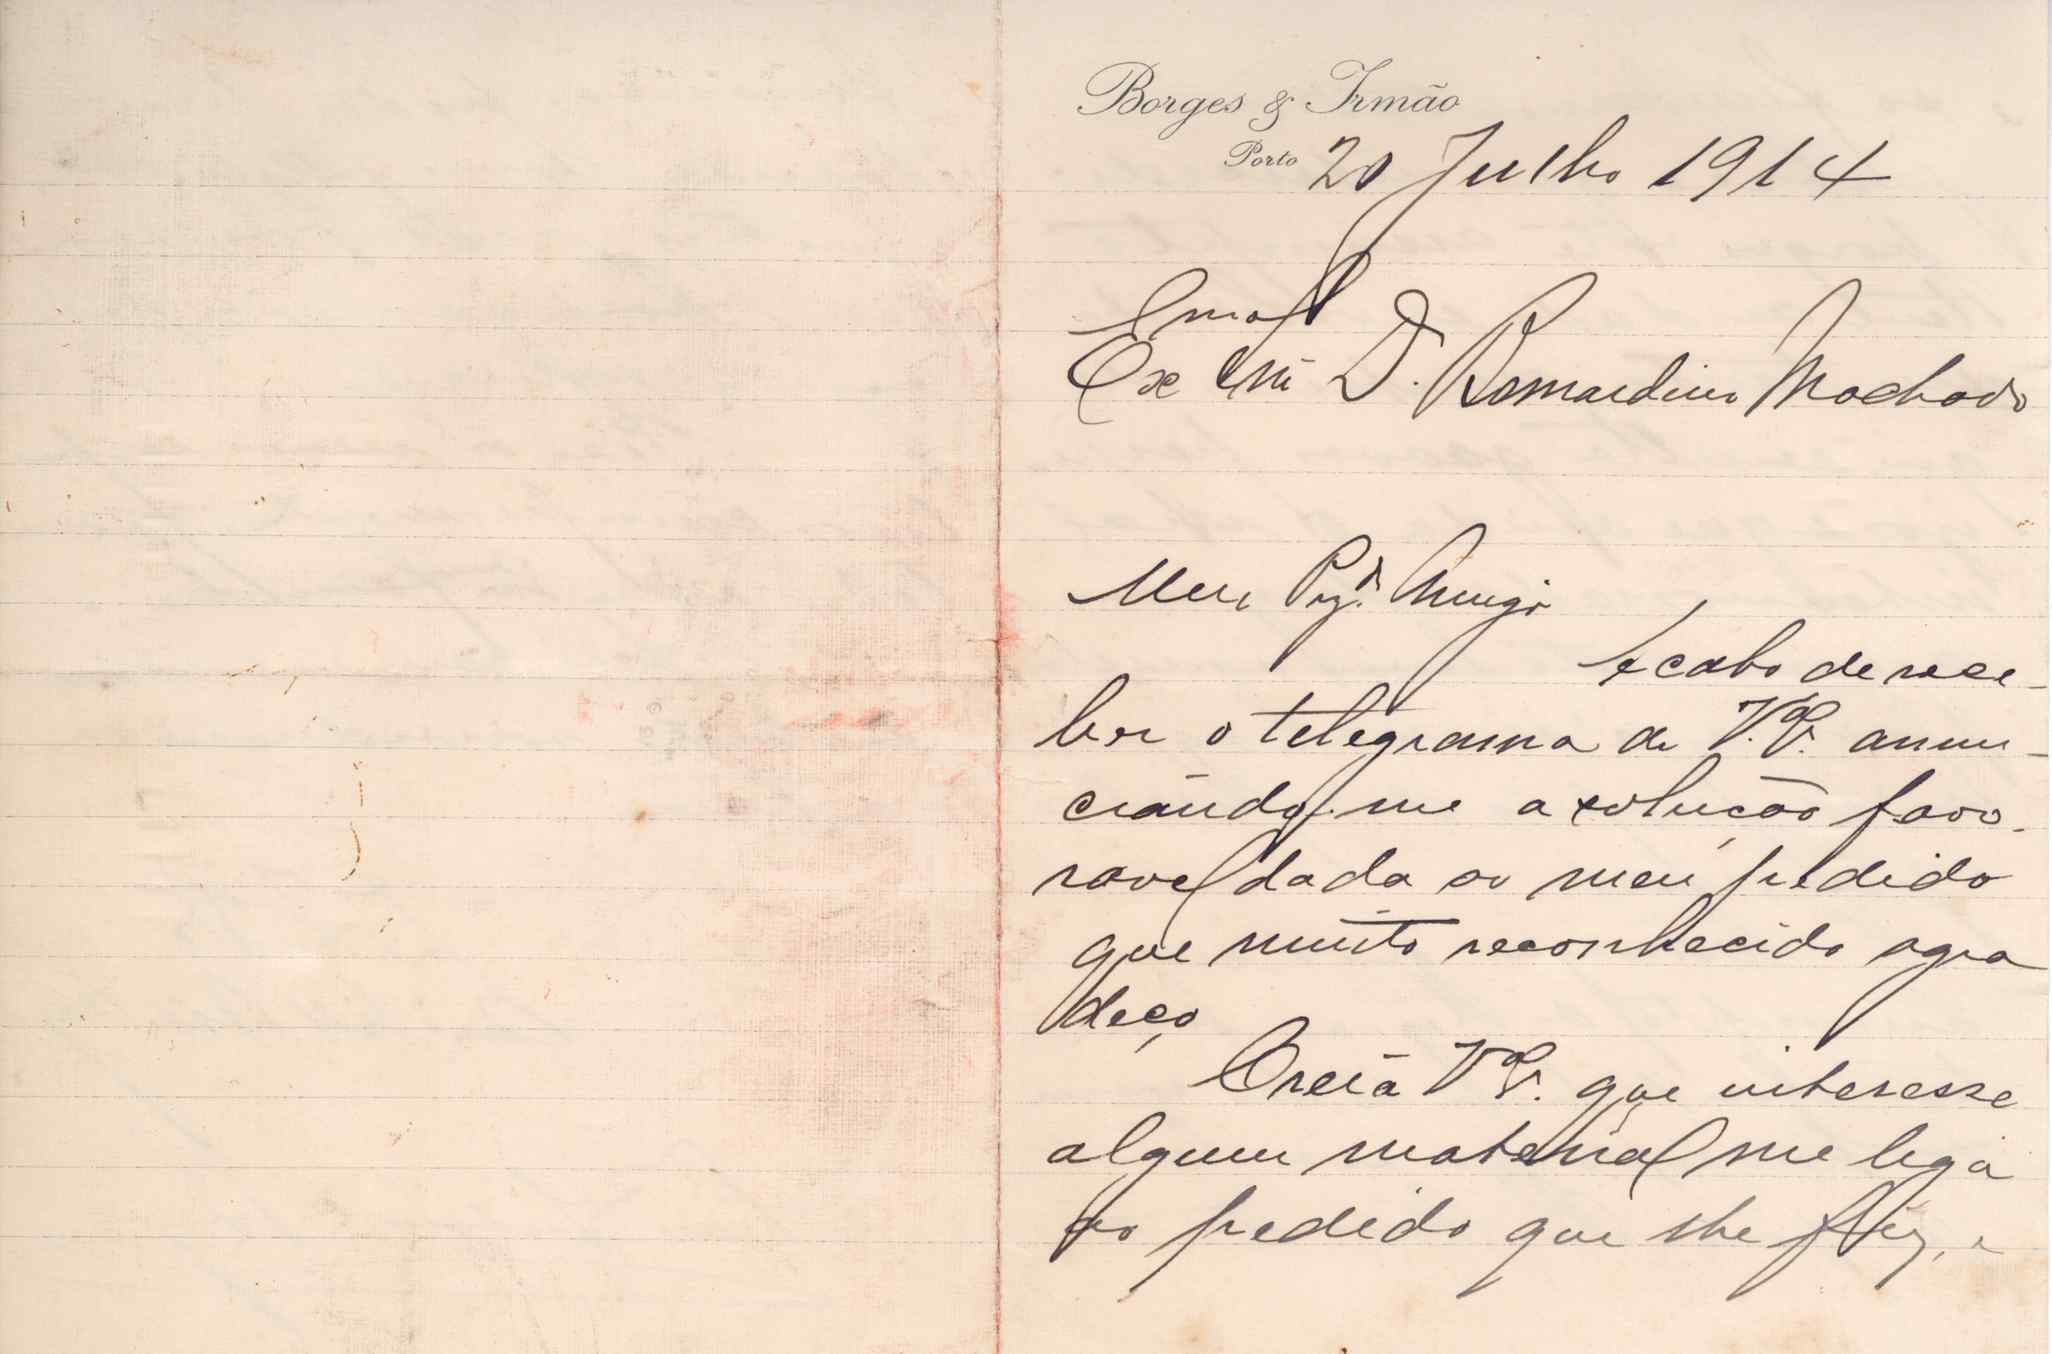 Borges & Irmão
Porto 20 Julho 1914
Ex D. Bernardino Machado
Meu Prz.do Amigo
Acabo de rece-
ber o telegrama de V. Ex. anun-
ciando-me a solução favo-
ravel dada ao meu pedido
que muito reconhecido agra
deço
Creia V. Ex. que interesse
algum material me liga
ao pedido que lhe fiz, e